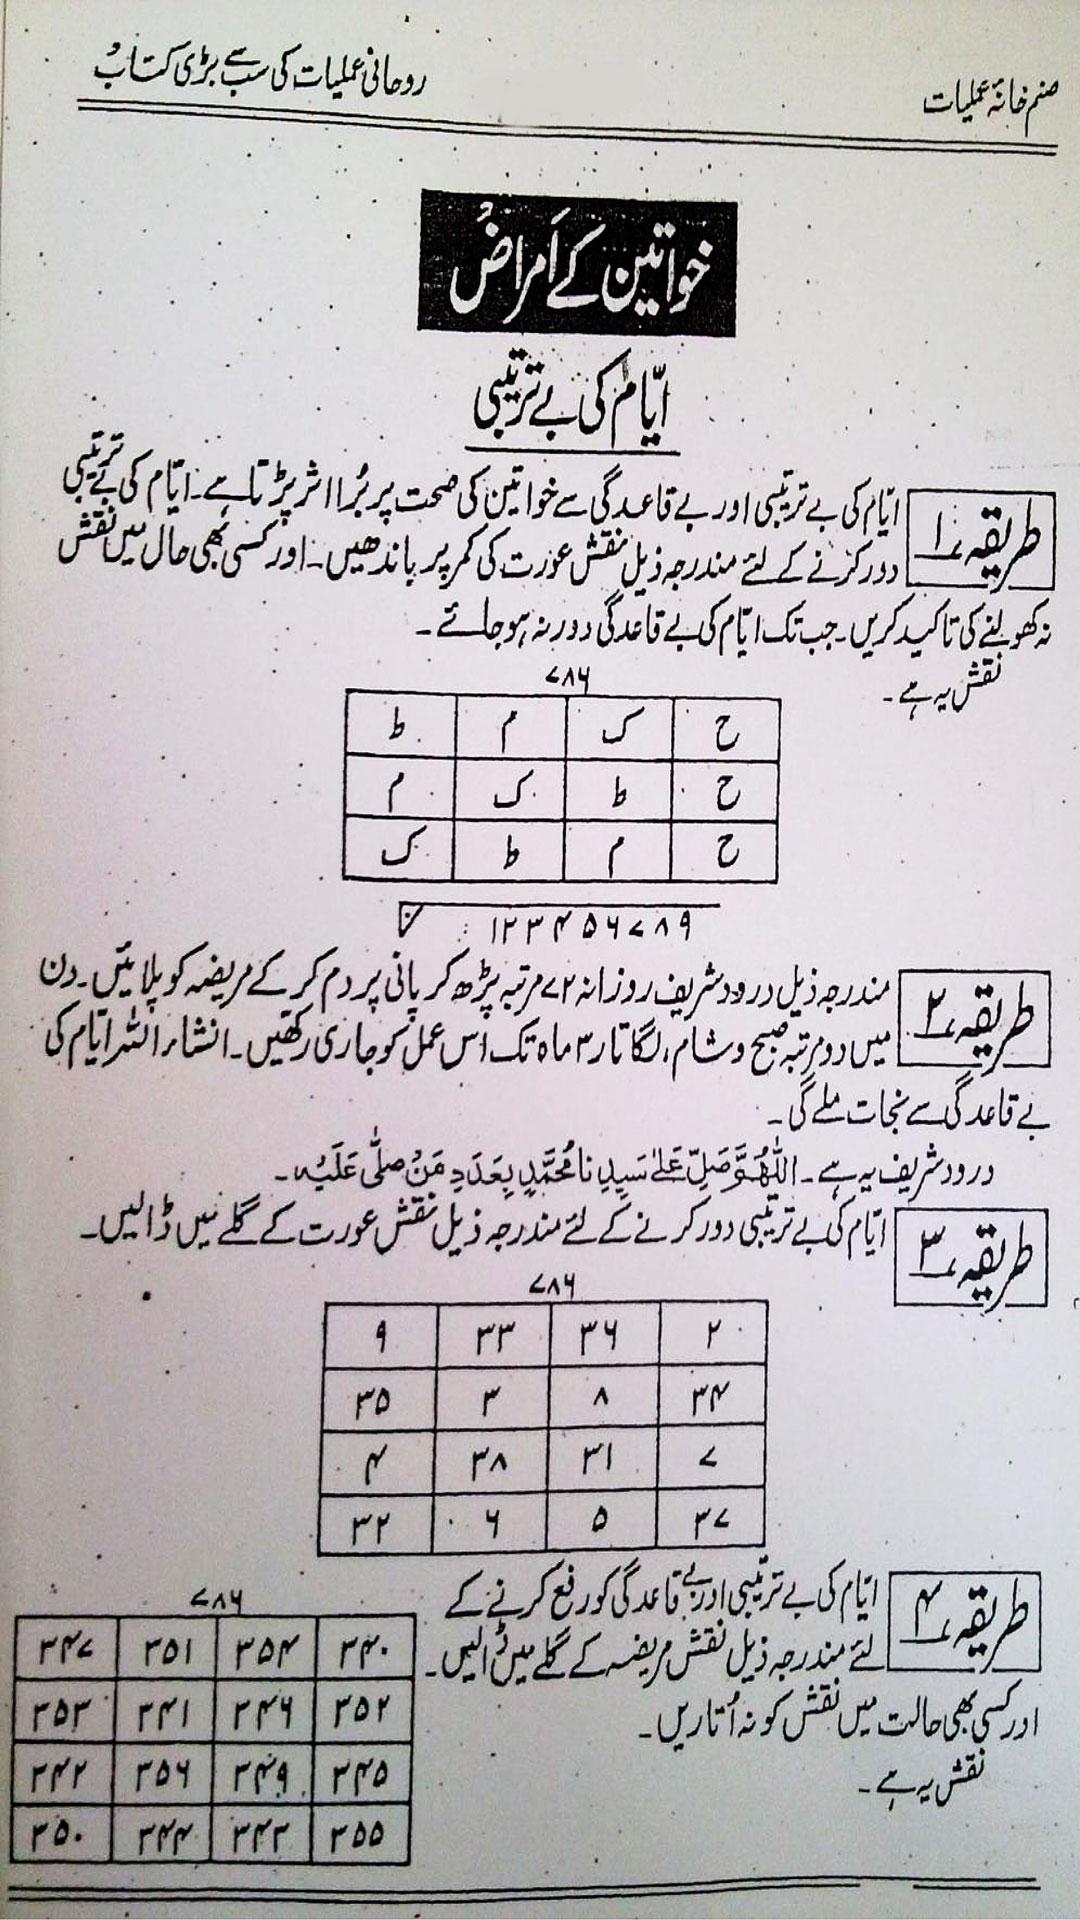 صنم خانۂ عملیات
روحانی عملیات کی سب سے بڑی کتاب
خواتین کے اَمراض
ایّام کی بے ترتیبی
طریقہ ۱
ایّام کی بے ترتیبی اور بے قاعدگی سے خواتین کی صحت پر بُرا اثر پڑتا ہے۔ ایّام کی بے ترتیبی
دور کرنے کے لئے مندرجہ ذیل نقش عورت کی کمر پر باندھیں۔ اور کسی بھی حال میں نقش
نہ کھولنے کی تاکید کریں۔ جب تک ایّام کی بے قاعدگی دور نہ ہو جائے۔
نقش یہ ہے۔
۷۸۶
ح ک م ط
ح ط ک م
ح م ط ک
۱۲۳۴۵۶۷۸۹
طریقہ ۲
مندرجہ ذیل درود شریف روزانہ ۷۲ مرتبہ پڑھ کر پانی پر دم کر کے مریضہ کو پلائیں۔ دن
میں دو مرتبہ صبح و شام، لگاتار ۳ ماہ تک اس عمل کو جاری رکھیں۔ انشاء اللہ ایّام کی
بے قاعدگی سے نجات ملے گی۔
درود شریف یہ ہے۔ اَللّٰهُمَّ صَلِّ عَلٰی سَیِّدِنَا مُحَمَّدٍ بِعَدَدِ مَنْ صَلّٰی عَلَیْهِ۔
طریقہ ۳
ایّام کی بے ترتیبی دور کرنے کے لئے مندرجہ ذیل نقش عورت کے گلے میں ڈالیں۔
۷۸۶
۲ ۳۶ ۳۳ ۹
۳۴ ۸ ۳ ۳۵
۷ ۳۱ ۳۸ ۴
۳۷ ۵ ۶ ۳۲
طریقہ ۴
ایّام کی بے ترتیبی اور بے قاعدگی کو رفع کرنے کے
لئے مندرجہ ذیل نقش مریضہ کے گلے میں ڈالیں۔
اور کسی بھی حالت میں نقش کو نہ اُتاریں۔
نقش یہ ہے۔
۷۸۶
۳۴۰ ۳۵۴ ۳۵۱ ۳۴۷
۳۵۲ ۳۴۶ ۳۴۱ ۳۵۳
۳۴۵ ۳۴۹ ۳۵۶ ۳۴۲
۳۵۵ ۳۴۳ ۳۴۴ ۳۵۰